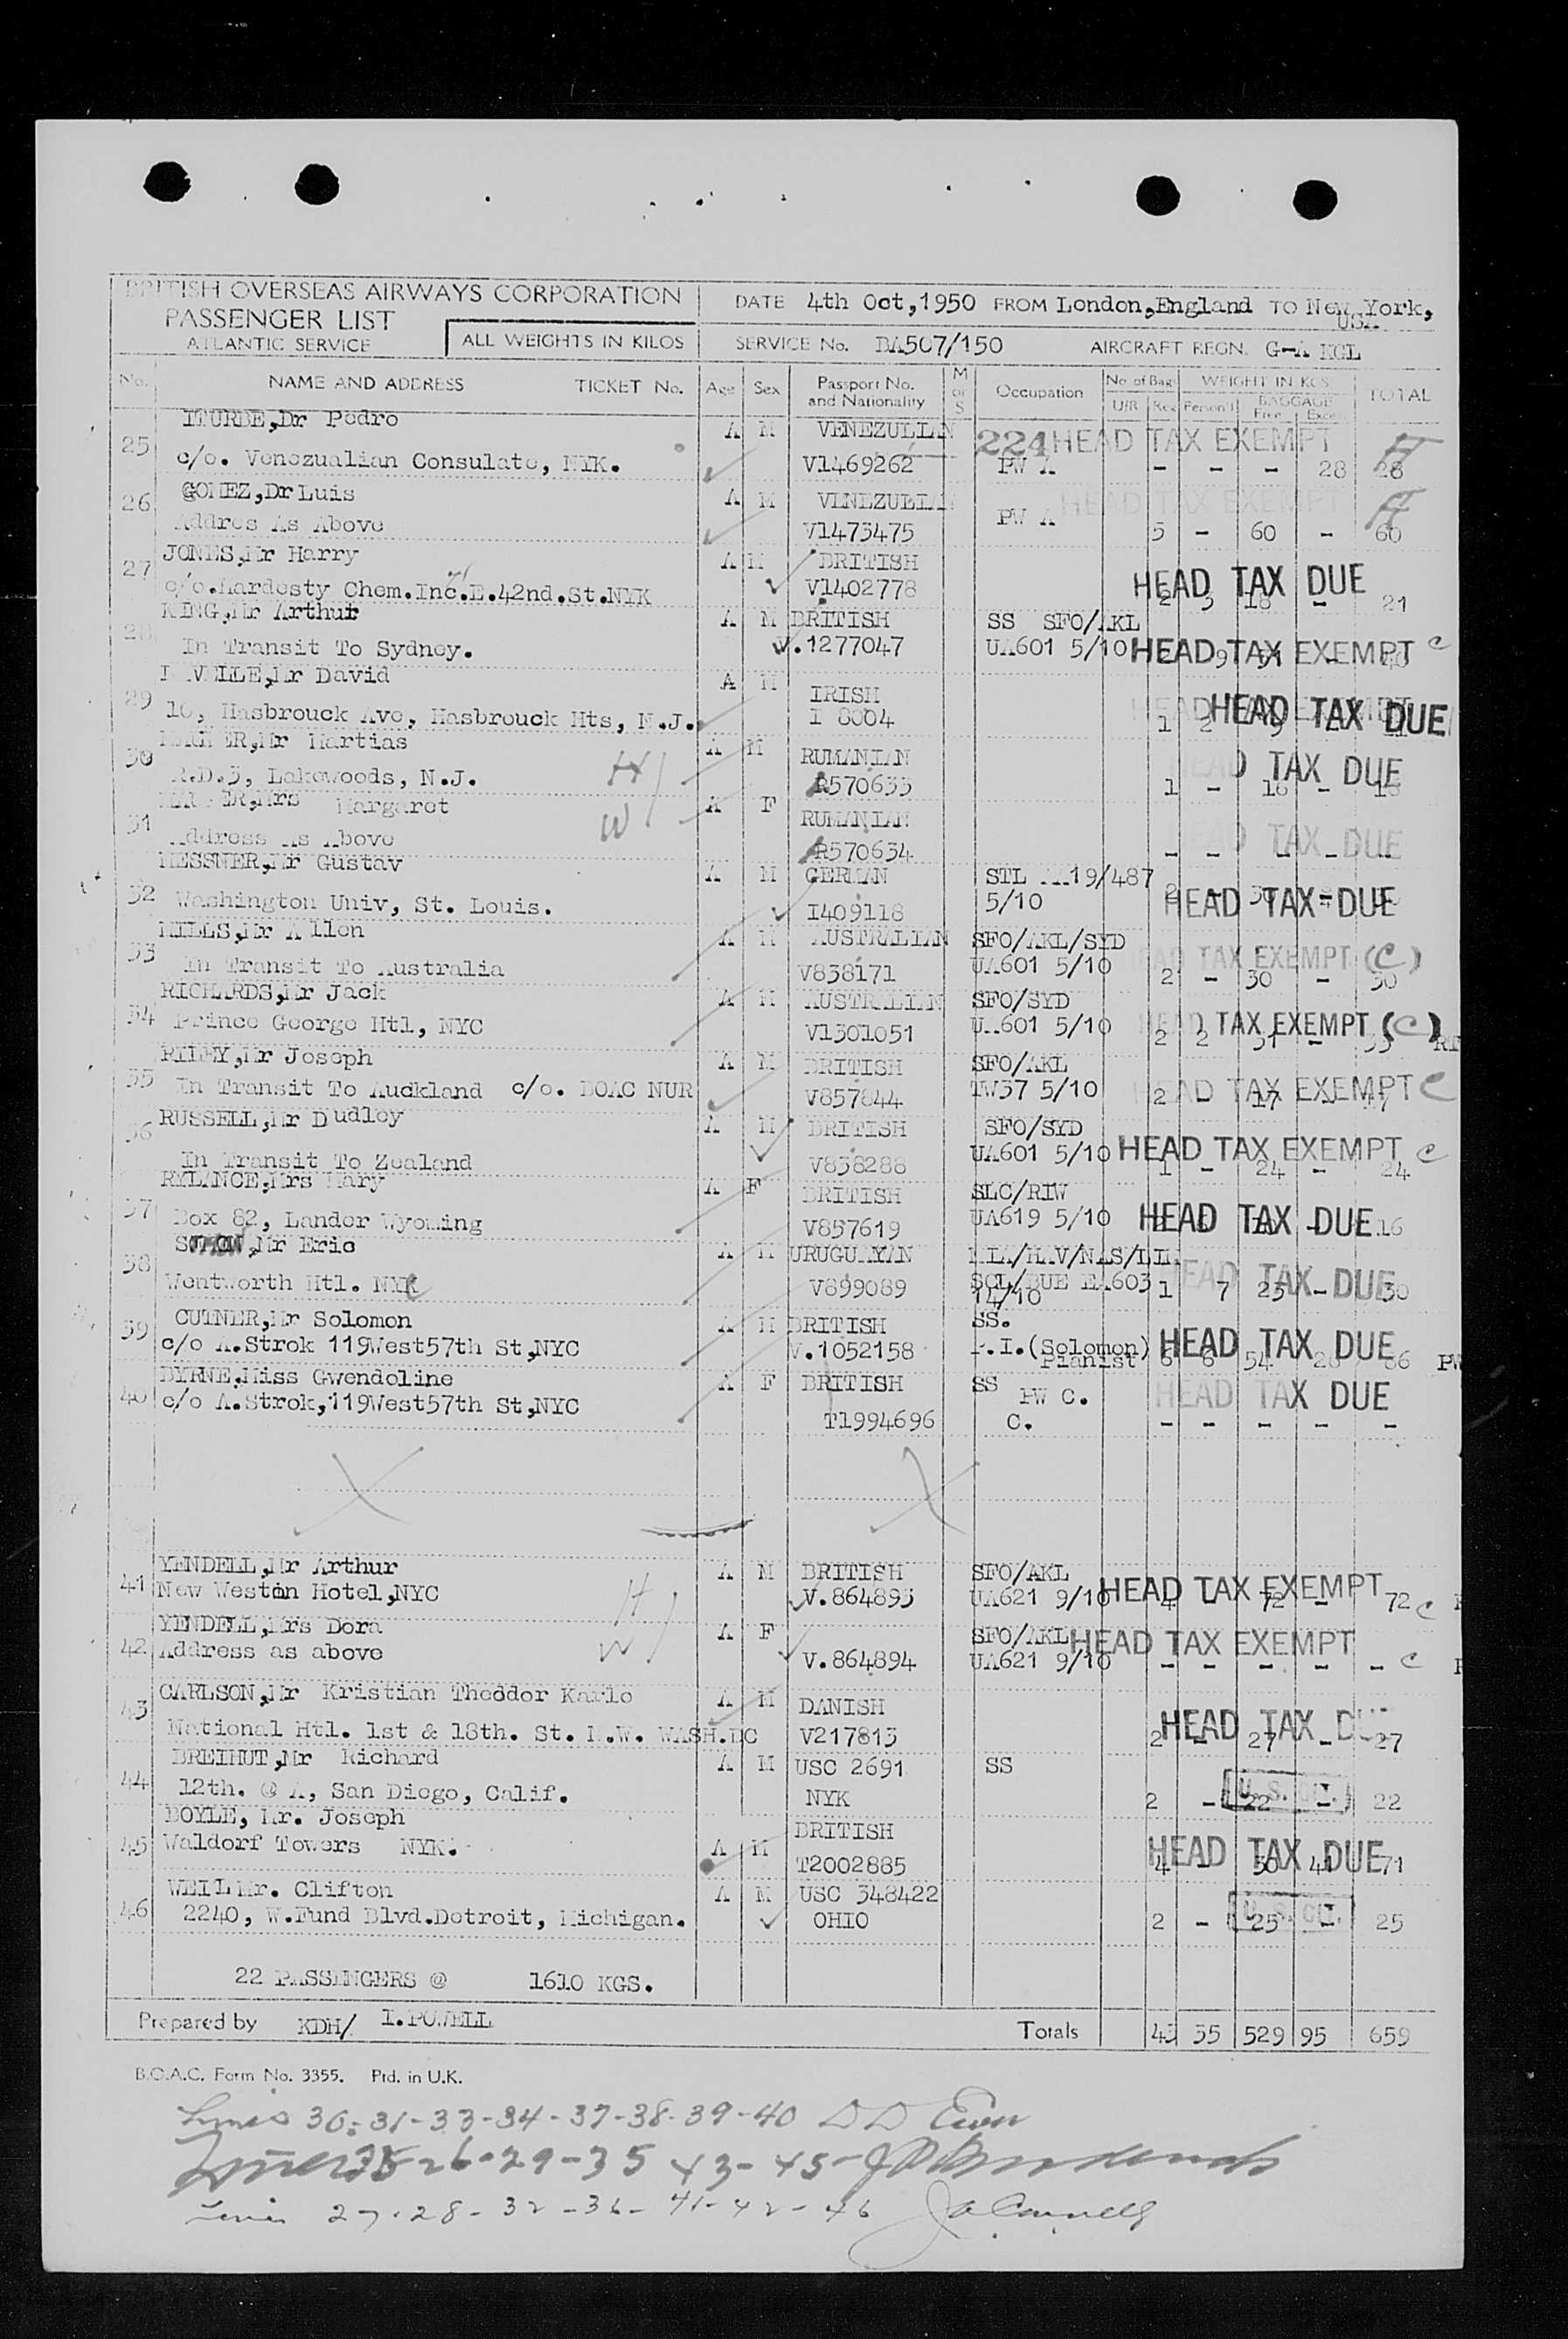 BRITISH OVERSEAS AIRWAYS CORPORATION
PASSENGER LIST
ATLANTIC SERVICE
ALL WEIGHTS IN KILOS
DATE 4th Oct,1950 FROM London,England TO New York, USA
SERVICE No. BA507/150 AIRCRAFT REGN. G-A
No. NAME AND ADDRESS TICKET No. Age Sex Passport No. and Nationality M or S Occupation No. of Bags U/R Reg WEIGHT IN KGS Person'l BAGGAGE Free Exce TOTAL
ITURBE,Dr Pedro A M VENEZULIAN 224 HEAD TAX EXEMPT H
25 c/o. Venezualian Consulate, NYK. V1469262 PW A - - - 28 28
GOMEZ,Dr Luis A M VENEZULIA HEAD TAX EXEMPT H
26 Addres As Above V1473475 PW A 5 - 60 - 60
JONES,Mr Harry A M BRITISH HEAD TAX DUE
27 c/o.Hardesty Chem.Inc.E.42nd.St.NYK V1402778 2 3 18 - 21
KING,Mr Arthur A M BRITISH SS SFO/AKL
28 In Transit To Sydney. V.1277047 UA601 5/10 HEAD TAX EXEMPT C
VELLE,Mr David A M IRISH
29 10, Hasbrouck Ave, Hasbrouck Hts, N.J. I 8004 HEAD TAX DUE 1 2
ER,Mr Martias A M RUMANIAN
30 R.D.3, Lakewoods, N.J. H R570633 HEAD TAX DUE 1 - 16 -
ER,Mrs Margaret W A F RUMANIAN
31 Address As Above R570634 HEAD TAX DUE - - - - -
MESSNER,Mr Gustav A M GERMAN STL AA19/487
32 Washington Univ, St. Louis. I409118 5/10 HEAD TAX DUE
MILLS,Mr Allen A M AUSTRALIAN SFO/AKL/SYD
33 In Transit To Australia V838171 UA601 5/10 HEAD TAX EXEMPT (C) 2 - 30 - 30
RICHARDS,Mr Jack A M AUSTRALIAN SFO/SYD
34 Prince George Htl, NYC V1301051 UA601 5/10 HEAD TAX EXEMPT (C) 2 2 31 - 33
RILEY,Mr Joseph A M BRITISH SFO/AKL
35 In Transit To Auckland c/o. BOAC NUR V857844 TW37 5/10 HEAD TAX EXEMPT C 2 - 17
RUSSELL,Mr Dudley A M BRITISH SFO/SYD
36 In Transit To Zealand V838288 UA601 5/10 HEAD TAX EXEMPT C 1 - 24 - 24
RYLANCE,Mrs Mary A F BRITISH SLC/RIW
37 Box 82, Lander Wyoming V857619 UA619 5/10 HEAD TAX DUE 16
Mr Eric A M URUGUAYAN MIA/HAV/NAS/LIM
38 Wentworth Htl. NYC V899089 SCL/BUE EA603 14/10 HEAD TAX DUE 1 7 23 - 30
CUTNER,Mr Solomon A M BRITISH SS.
39 c/o A.Strok 119West57th St,NYC V.1052158 P.I.(Solomon) Pianist HEAD TAX DUE 6 6 54 26 86 PW
BYRNE,Miss Gwendoline A F BRITISH SS PW C.
40 c/o A.Strok,119West57th St,NYC T1994696 C. HEAD TAX DUE - - - - -
YENDELL,Mr Arthur A M BRITISH SFO/AKL
41 New Westin Hotel,NYC H V.864893 UA621 9/10 HEAD TAX EXEMPT 4 - 72 - 72 C
YENDELL,Mrs Dora A F SFO/AKL HEAD TAX EXEMPT
42 Address as above W V.864894 UA621 9/10 - - - - - C
CARLSON,Mr Kristian Theodor Karlo A M DANISH
43 National Htl. 1st & 18th. St. N.W. WASH.DC V217813 HEAD TAX DUE 2 - 27 - 27
BREIHUT,Mr Richard A M USC 2691 SS
44 12th. @ A, San Diego, Calif. NYK U.S. CIT. 2 - 22 - 22
BOYLE, Mr. Joseph BRITISH
45 Waldorf Towers NYK. A M T2002885 HEAD TAX DUE 4 - 30 41 71
WEIL Mr. Clifton A M USC 348422
46 2240, W.Fund Blvd.Detroit, Michigan. OHIO U.S. CIT. 2 - 25 - 25
22 PASSENGERS @ 1610 KGS.
Prepared by KDH/ I.POWELL Totals 43 35 529 95 659
B.O.A.C. Form No. 3355. Ptd. in U.K.
Lines 30-31-33-34-37-38-39-40
Lines 25 26-29-35 43-45
Lines 27-28-32-36-41-42-46